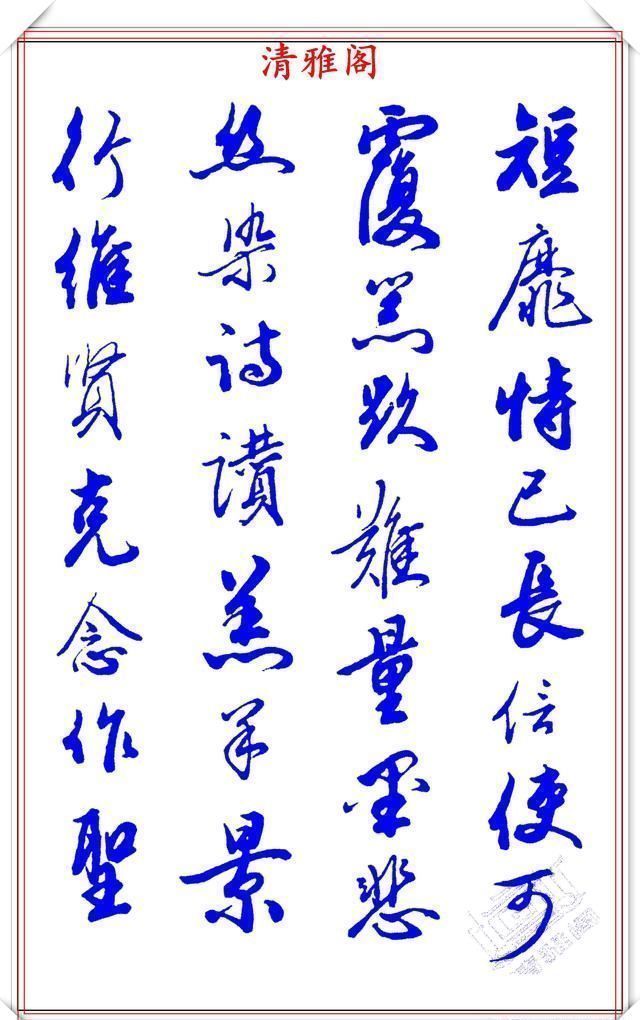 清雅阁
短靡恃己長信使可
覆器欲難量墨悲
丝染詩讚羔羊景
行維賢克念作聖